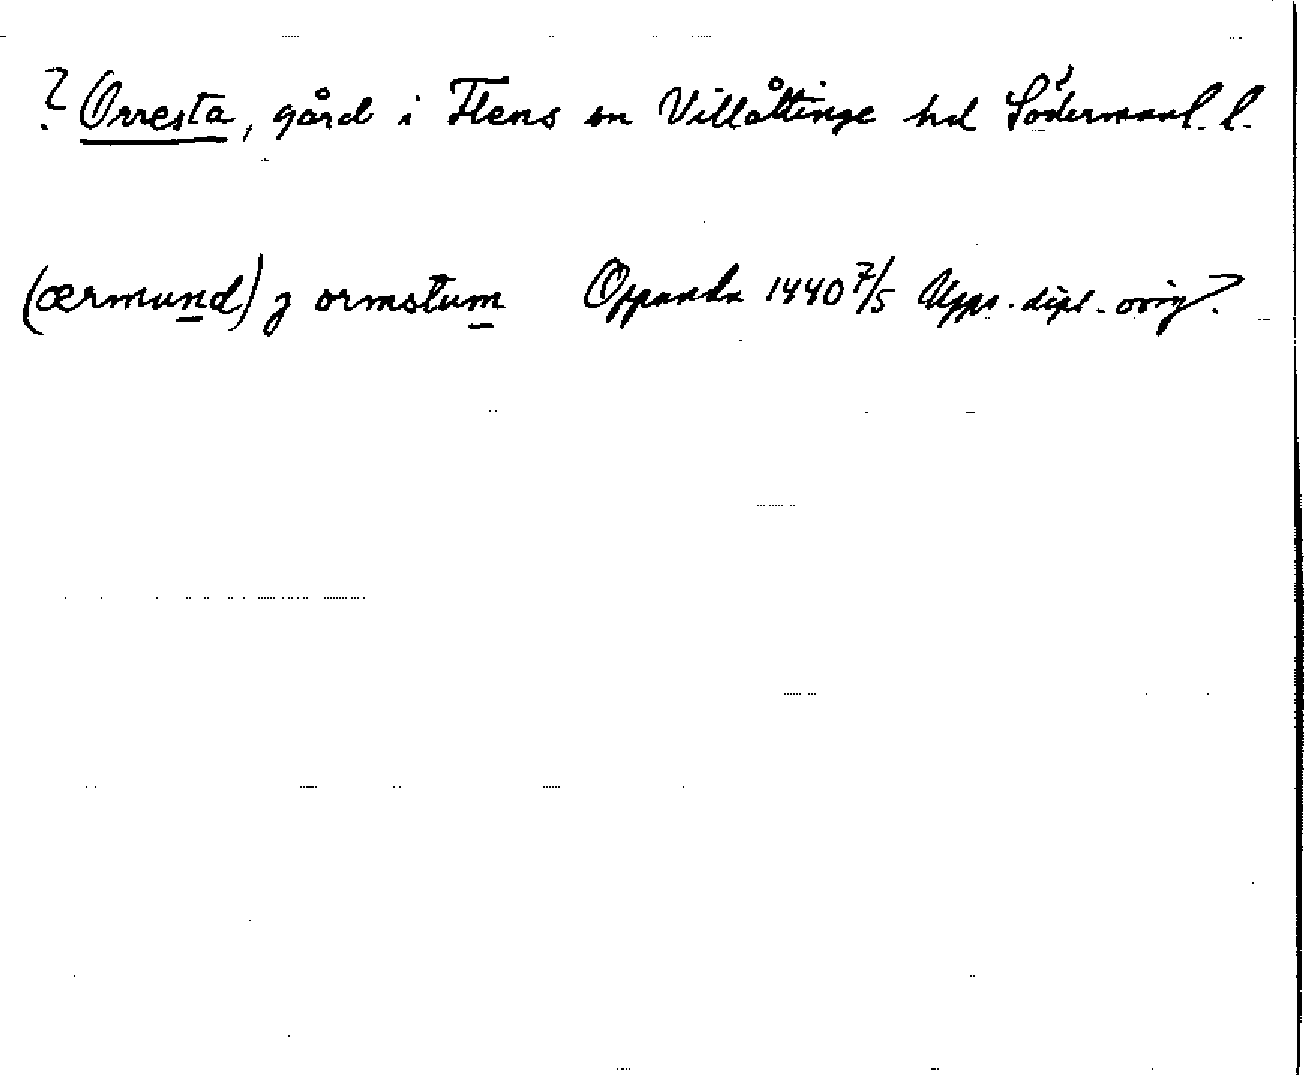 ? Orresta, gård i Flens sn Villåttinge hd Södermanl. l.
(ærmund) j ormstum Oppunda 1440 7/5 Upps. dipl. orig.